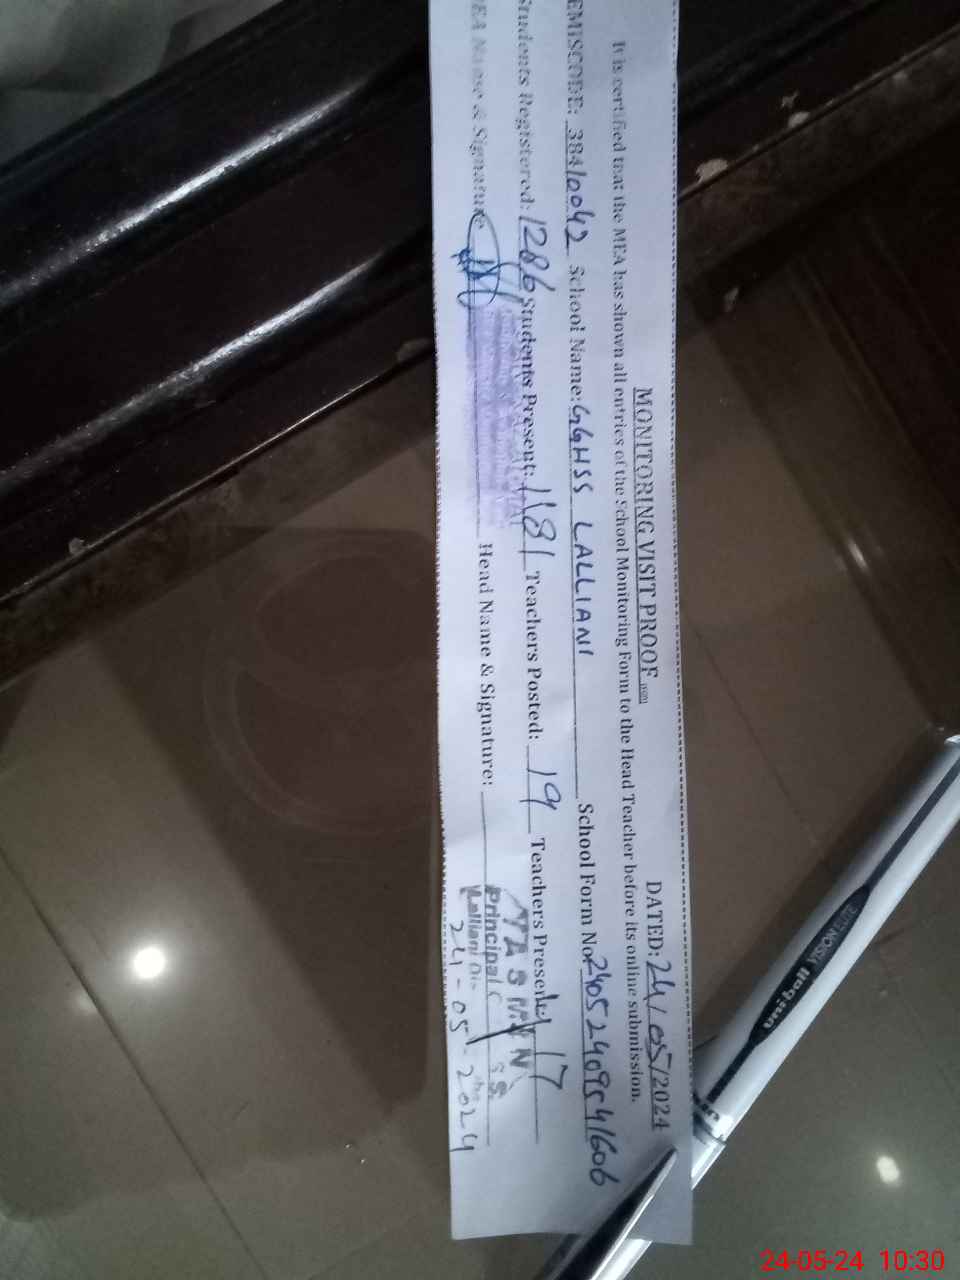 MONITORING VISIT PROOF DATED: 24/05/2024
It is certified that the MEA has shown all entries of the School Monitoring Form to the Head Teacher before its online submission.
EMISCODE: 38410042 School Name: GGHSS LALLIANI School Form No. 24052409541606
Students Registered: 1286 Students Present: 1181 Teachers Posted: 19 Teachers Present: 17
MEA Name & Signature Head Name & Signature:
YASMIN
Principal
Lalliani
24-05-2024
uniball VISION ELITE
24-05-24 10:30